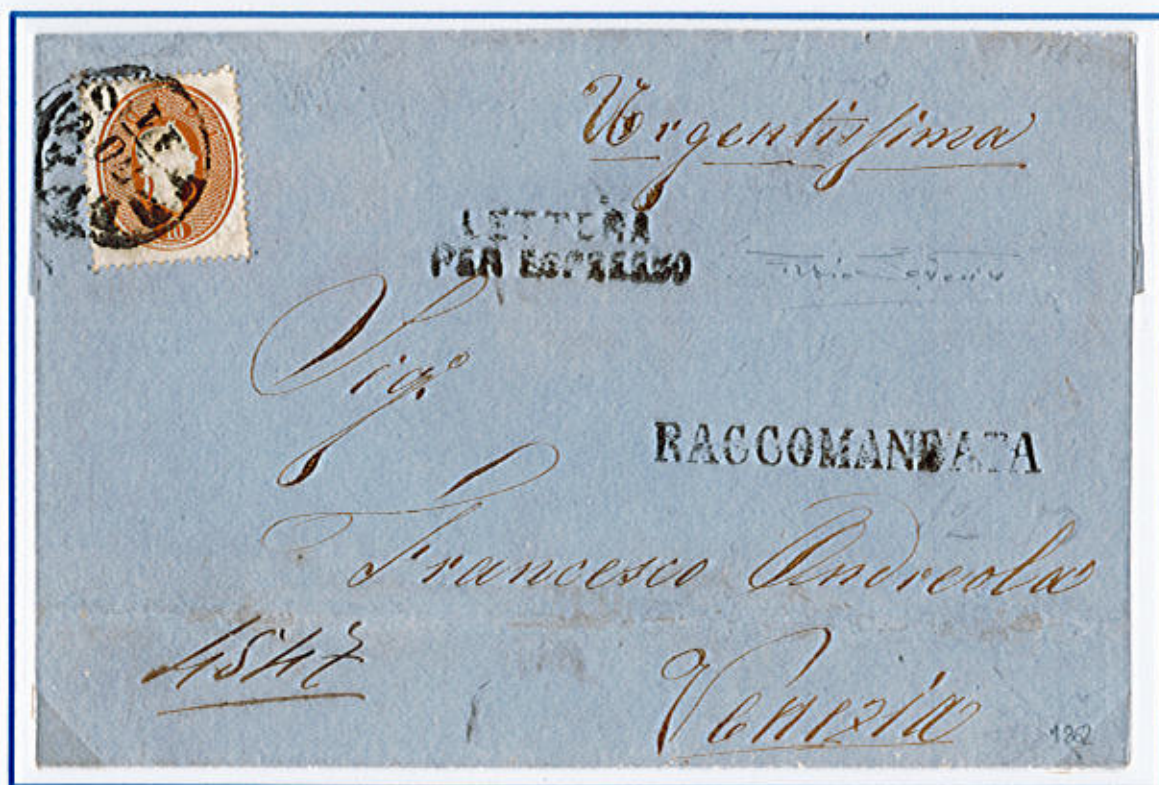 Urgentissima
LETTERA
PER ESPRESSO
Sigr
RACCOMANDATA
Francesco Andreola
4547
Venezia
1862
10